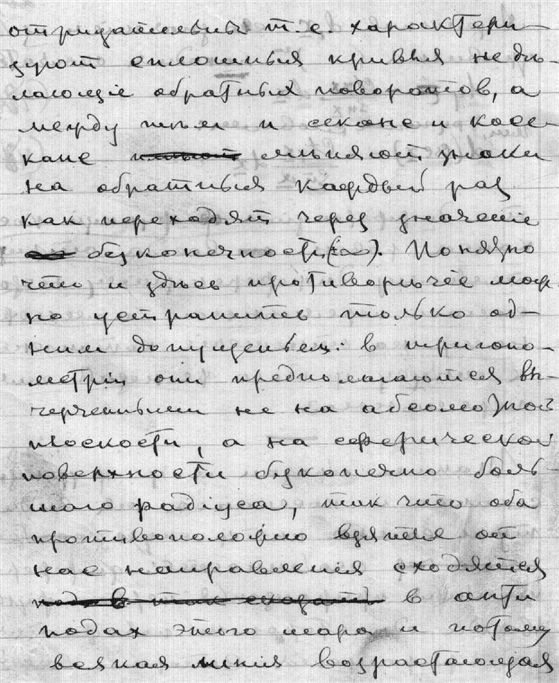 отрицательны т.е. характери-
зуют сплошныя кривыя не дѣ-
лающіе обратныхъ поворотов, а
между тѣм и секансе и косе-
кансе мѣняют знаки
на обратныя каждый раз
как переходят через значеніе
безконечность (±∞). Понятно
что и здѣсь противорѣчіе мож-
но устранить только од-
ним допущеньем: в тригоно-
метріи они предполагаются вы-
черченными не на абсолютной
плоскости, а на сферической
поверхности безконечно боль-
шого радіуса, так что оба
противоположно взятые от
нас направленія сходятся
в анти
подах этого шара и потому
всякая линія возрастающая